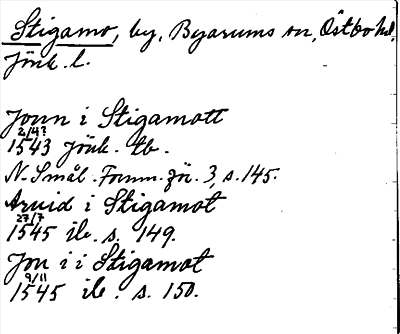 Stigamo, by, Byarums sn, Östbo hd,
Jönk. l.
Jonn i Stigamott
2/4?
1543 Jönk. tb.
N. Smål. Fornm. för. 3, s. 145.
Arvid i Stigamot
27/7
1545 ib. s. 149.
Jon i i Stigamot
9/11
1545 ib. s. 150.